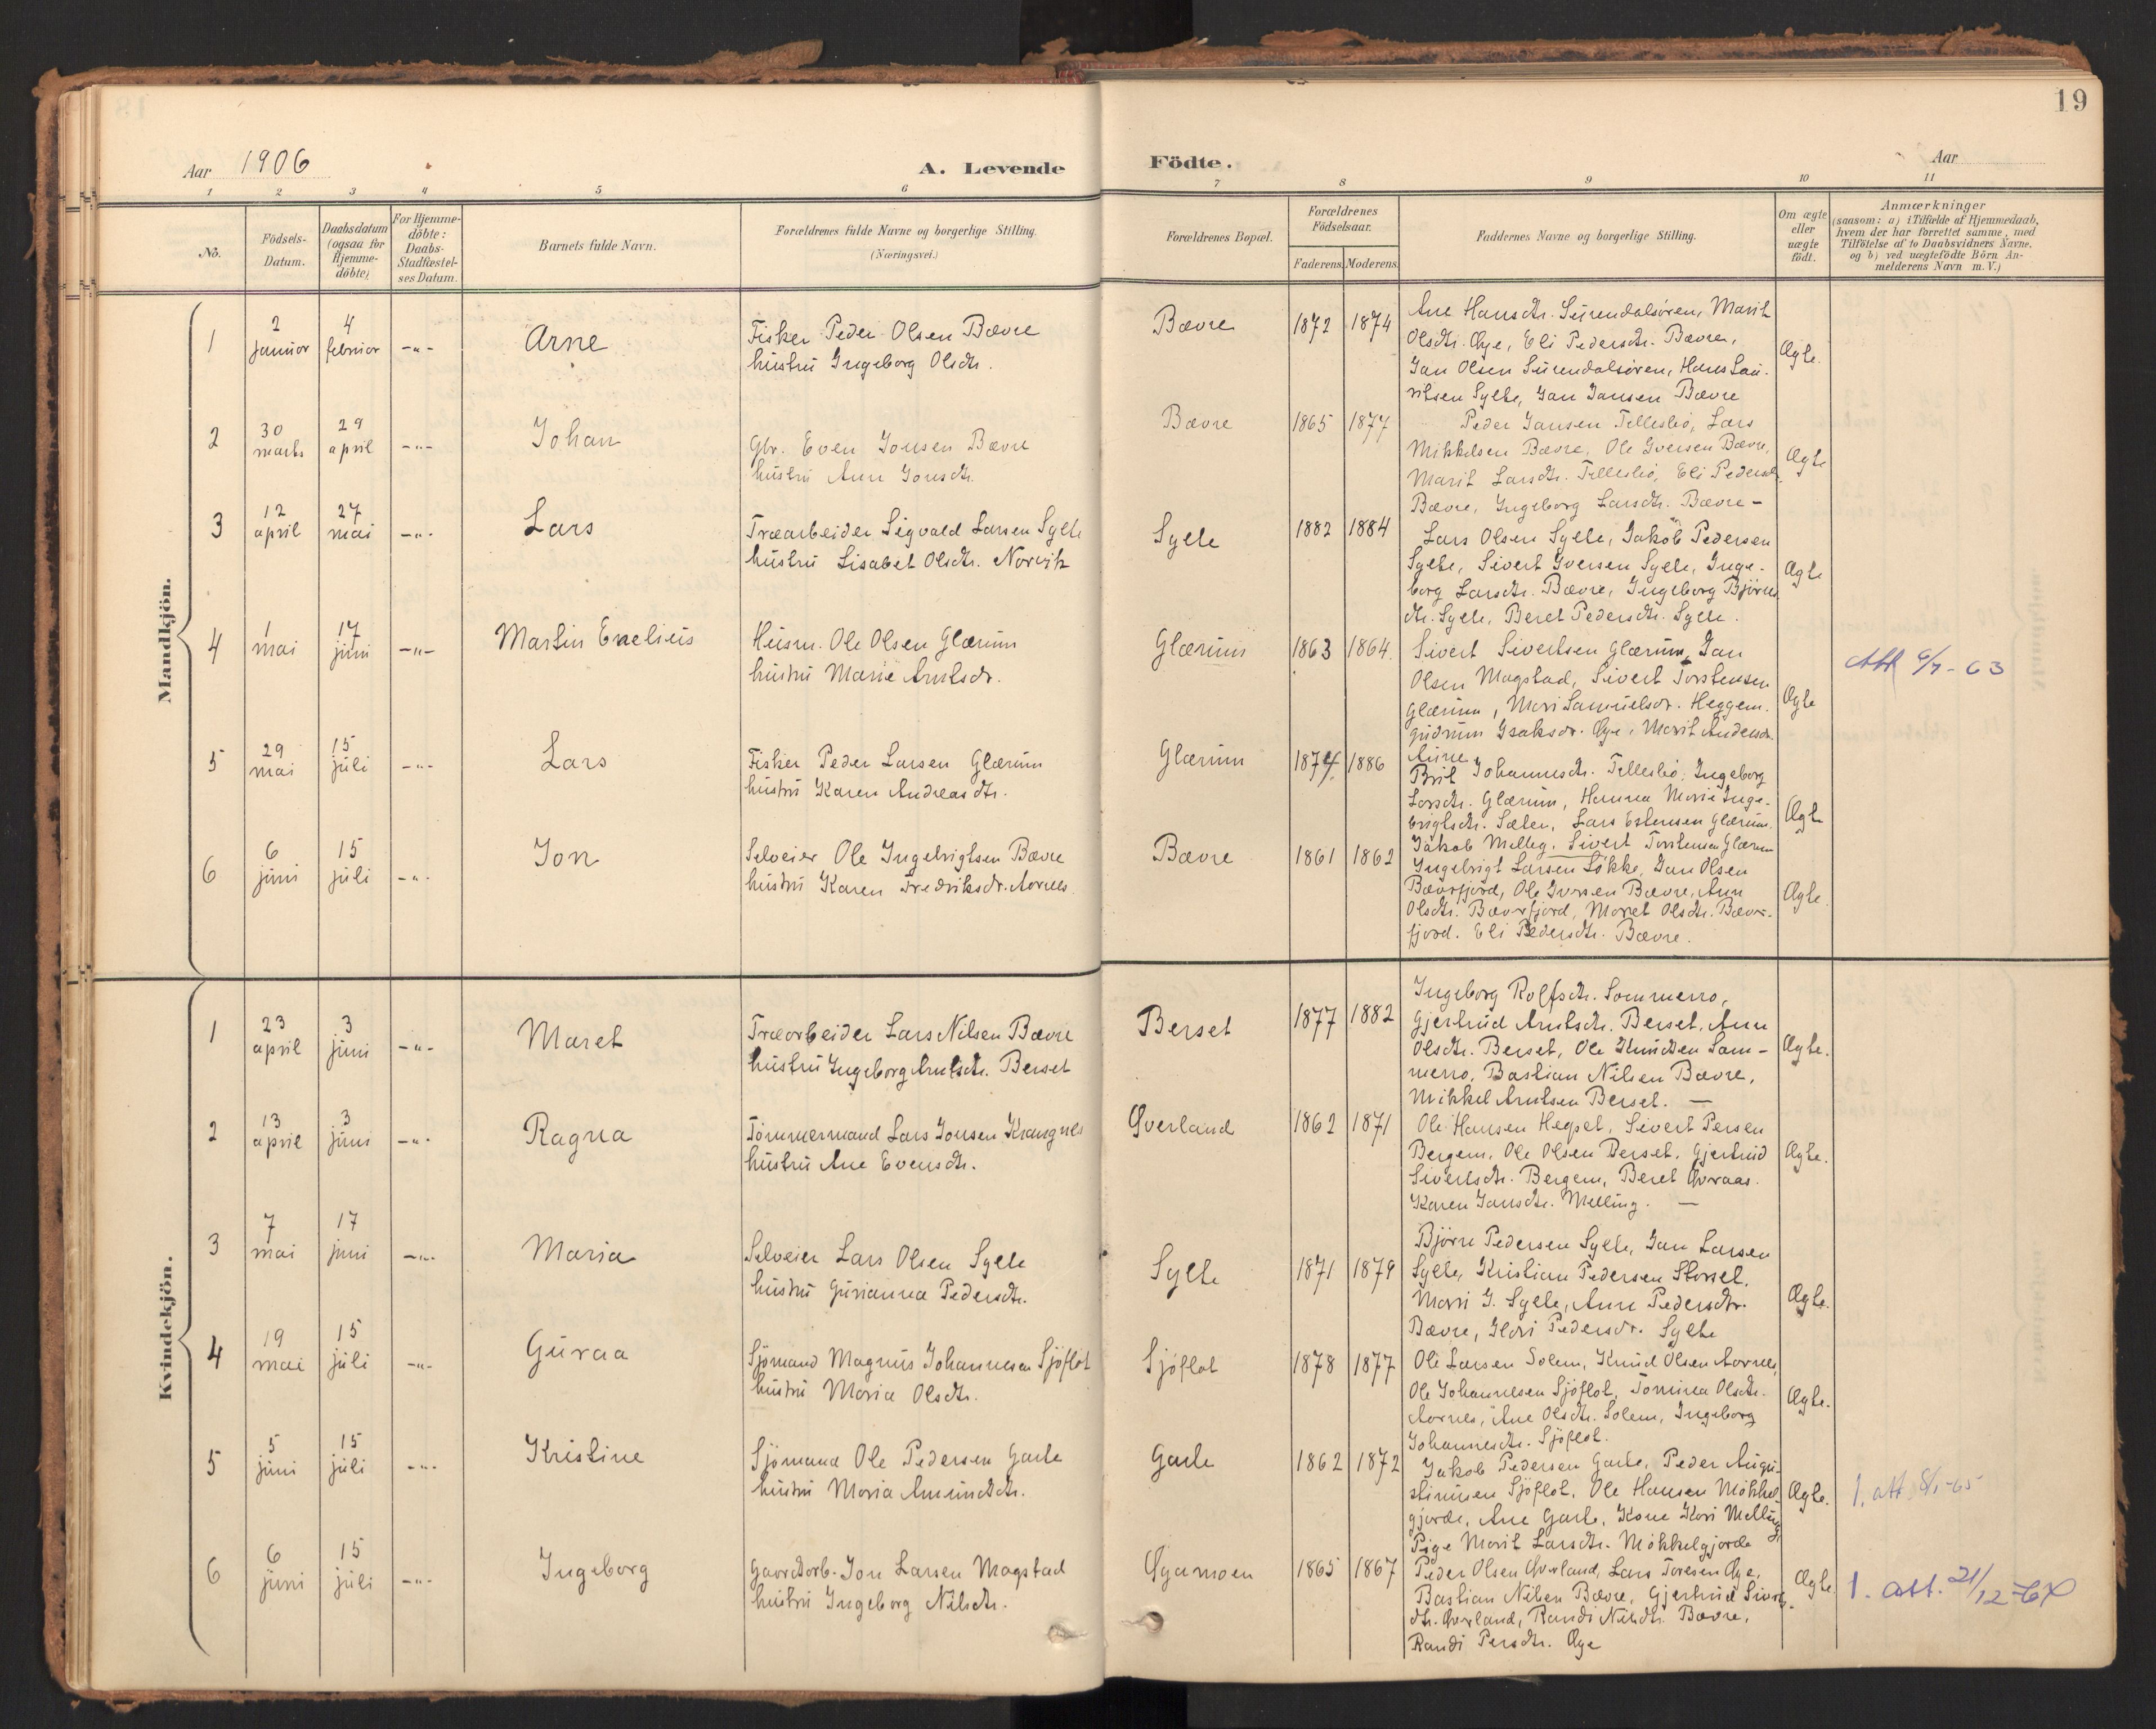 19
Aar 1906
A. Levende Födte.
Aar
1 2 3 4 5 6 7 8 9 10 11
No.
Födsels-
Datum.
Daabsdatum
(ogsaa for
Hjemme-
döbte)
For Hjemme-
döbte:
Daabs-
Stadfæstel-
ses Datum.
Barnets fulde Navn.
Forældrenes fulde Navne og borgerlige Stilling.
(Næringsvei.)
Forældrenes Bopæl.
Forældrenes
Födselsaar.
Faderens. Moderens.
Faddernes Navne og borgerlige Stilling.
Om ægte
eller
uægte
födt.
Anmærkninger
(saasom: a) i Tilfælde af Hjemmedaab,
hvem der har forrettet samme, med
Tilföielse af to Daabsvidners Navne.
og b) ved uægtefödte Börn An-
melderens Navn m. V.)
Mandkjön.
1
2 januar
4 februar
-"-
Arne
Fisker Peder Olsen Bævre
hustru Ingeborg Olsdtr.
Bævre
1872 1874
Ane Hansdtr. Surendalsøren, Marit
Olsdtr. Øye, Eli Pedersdtr. Bævre,
Jan Olsen Surendalsøren, Hans Lau-
ritsen Sylte, Jan Jansen Bævre
Ægte.
2
30 marts
29 april
-"-
Johan
Gbr. Even Jonsen Bævre
hustru Ann Jonsdtr.
Bævre
1865 1877
Peder Jansen Tellesbø, Lars
Mikkelsen Bævre, Ole Iversen Bævre,
Marit Larsdtr. Tellesbø, Eli Pedersd.
Bævre, Ingeborg Larsdtr. Bævre -
Ægte
3
12 april
27 mai
-"-
Lars
Træarbeider Sigvald Larsen Sylte
hustru Lisabet Olsdtr. Norvik
Sylte
1882 1884
Lars Olsen Sylte, Jakob Pedersen
Sylte, Sivert Iversen Sylte, Inge-
borg Larsdtr. Bævre, Ingeborg Bjørns
dtr. Sylte, Beret Pedersdtr. Sylte.
Ægte
4
1 mai
17 juni
-"-
Martin Enelius
Husm. Ole Olsen Glærum
hustru Marie Arntsdr.
Glærum
1863 1864.
Sivert Sivertsen Glærum, Jan
Olsen Magstad, Sivert Torstensen
Glærum, Mari Samuelsdr. Heggem.
Gudrun Isaksdr. Øye, Marit Andersdr.
Aune
Ægte
Att 6/7-63
5
29 mai
15 juli
-"-
Lars
Fisker Peder Larsen Glærum
hustru Karen Andreasdtr.
Glærum
1874 1886
Brit Johannesdtr. Tellesbø, Ingeborg
Larsdtr. Glærum, Hanna Marie Inge-
brigtsdtr. Sæter, Lars Estensen Glærum.
Jakob Melleg. Sivert Torstensen Glærum
Ægte
6
6 juni
15 juli
-"-
Jon
Selveier Ole Ingebrigtsen Bævre
hustru Karen Fredriksdr. Aarnes
Bævre
1861 1862
Ingebrigt Larsen Løkke, Jan Olsen
Bæverfjord, Ole Iversen Bævre, Ann
Olsdtr. Bæverfjord, Maret Olsdtr. Bæver-
fjord. Eli Pedersdtr. Bævre.
Ægte.
Kvindekjön.
1
23 april
3 juni
-"-
Maret
Træarbeider Lars Nilsen Bævre
hustru Ingeborg Arntsdtr. Berset
Berset
1877 1882
Ingeborg Rolfsdtr. Sommerro,
Gjertrud Arntsdtr. Berset, Ann
Olsdtr. Berset, Ole Knudsen Som-
merro, Bastian Nilsen Bævre,
Mikkel Arntsen Berset. -
Ægte.
2
13 april
3 juni
-"-
Ragna
Tømmermand Lars Jonsen Krangnes
hustru Ane Evensdtr.
Øverland
1862 1871
Ole Hansen Hegset, Sivert Persen
Bergem, Ole Olsen Berset, Gjertrud
Sivertsdtr. Bergem, Beret Øvraas.
Karen Jansdtr. Melling. -
Ægte.
3
7 mai
17 juni
-"-
Maria
Selveier Lars Olsen Sylte
hustru Gurianna Pedersdtr.
Sylte
1871 1879
Bjørn Pedersen Sylte, Jan Larsen
Sylte, Kristian Pedersen
Mari J. Sylte, Ane Pedersdtr.
Bævre, Pedersdr. Sylte
Ægte.
4
19 mai
15 juli
-"-
Guraa
Sjömand Magnus Johannesen Sjöflot
hustru Maria Olsdtr.
Sjöflot
1878 1877
Ole Larsen Solem, Knud Olsen Aarnes,
Ole Johannesen Sjöflot, Tomina Olsdtr.
Aarnes, Ane Olsdtr. Solem, Ingeborg
Johannesdtr. Sjöflot.
Ægte.
5
5 juni
15 juli
-"-
Kristine
Sjömand Ole Pedersen Garte
hustru Maria Amundsdtr.
Garte
1862 1872
Jakob Pedersen Garte, Peder Augu-
stinusen Sjöflot, Ole Hansen Mökkel
gjærde, Ane Garte, Kone Kari Melling,
Pige Marit Larsdtr. Mökkelgjærde
Ægte.
1. att. 8/1-65
6
6 juni
15 juli
-"-
Ingeborg
Gaardarb. Jon Larsen Magstad
hustru Ingeborg Nilsdtr.
Øyamoen
1865 1867
Peder Olsen Øverland, Lars Toresen Øye,
Bastian Nilsen Bævre, Gjertrud Sivert-
dtr. Øverland, Randi Nilsdtr. Bævre,
Randi Persdtr. Øye
Ægte.
1. att. 21/12-